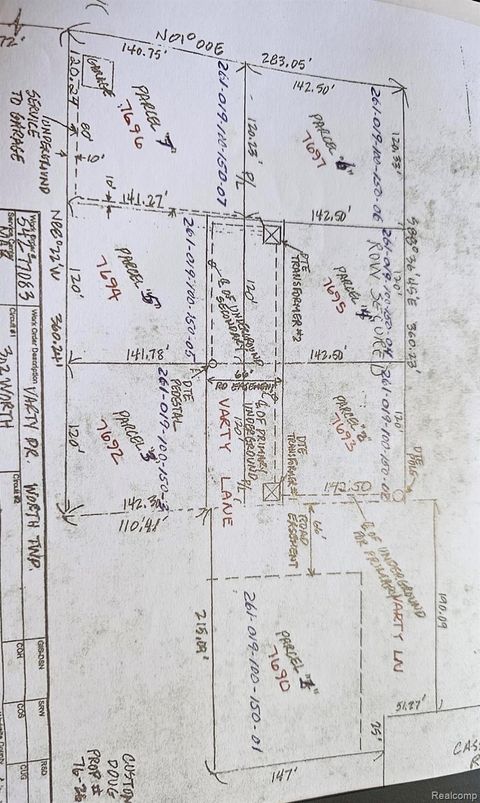 N01°00'E
140.75'
283.05'
142.50'
72'
120.24
GARAGE
PARCEL "7"
7696
261-019-100-150-07
120.23'
PARCEL "6"
7697
261-019-100-150-06
120.33'
UNDERGROUND
SERVICE
TO GARAGE
60'
10'
10'
141.27'
142.50'
S88°36'45"E 360.23
N88°32'W 360.24'
120'
PARCEL "5"
7694
261-019-100-150-05
℄ OF UNDERGROUND
SECONDARY
120'
DTE
TRANSFORMER #2
PARCEL "4"
7695
261-019-100-150-04
ROW SECURED
120'
141.78'
142.50'
DTE
PEDESTAL
66'
RD EASEMENT
120'
PARCEL "3"
7692
261-019-100-150-3
VARTY LANE
℄ OF PRIMARY
UNDERGROUND
120'
DTE
TRANSFORMER #1
PARCEL "2"
7693
261-019-100-150-02
120'
DTE
142.38'
110.41'
142.50
66'
ROAD
EASEMENT
℄ OF UNDERGROUND
PRIMARY
VARTY LN
215.09'
261-019-100-150-01
PARCEL "1"
7690
190.09
51.27'
25'
147'
Work Order Description
VARTY DR. WORTH TWP.
Circuit #1
312 WORTH
Circuit #2
COH
COS
CUSTOM
DOUG
PROP #
Realcomp